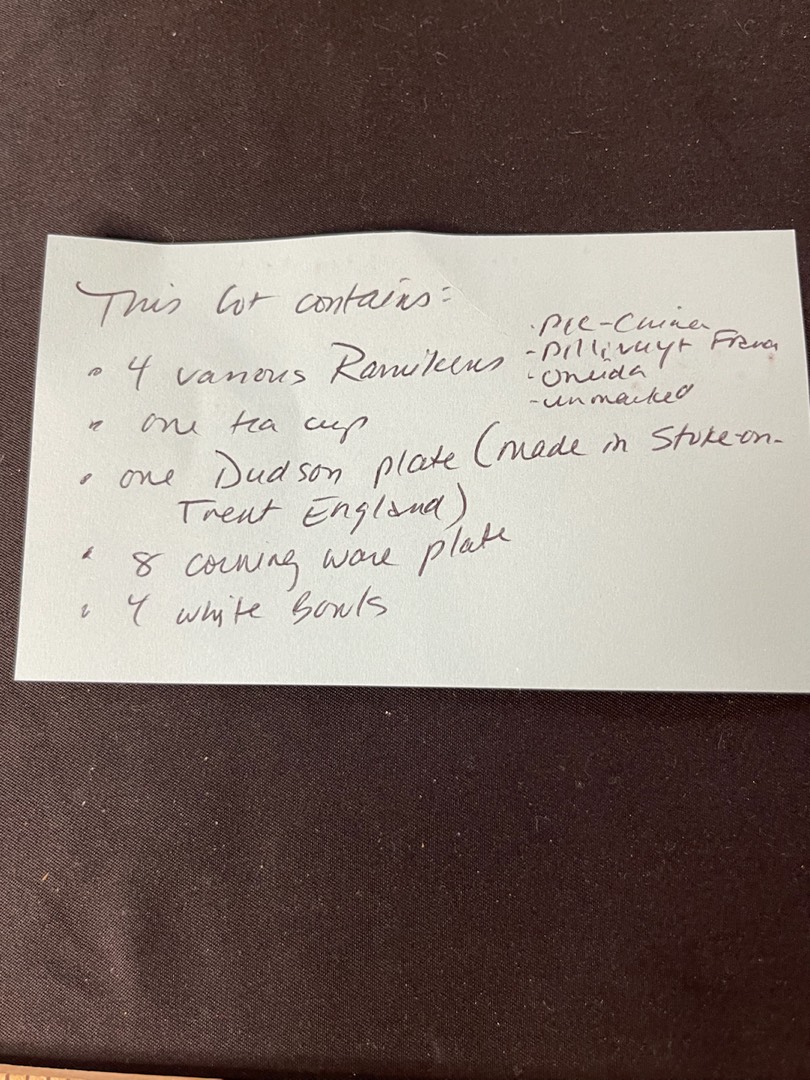 This lot contains:
• 4 various Ramikens
· PLC-China
- Pillivuyt France
- Oneida
- unmarked
• one tea cup
• one Dudson plate (made in Stoke-on-
Trent England)
• 8 corning ware plate
• 4 white Bowls